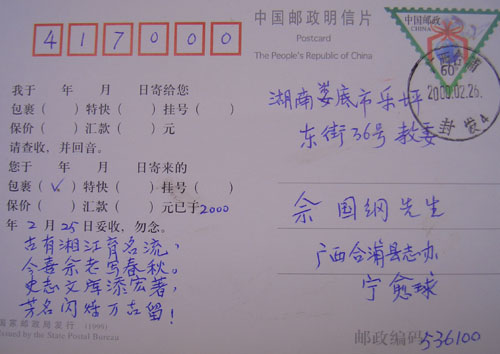 417000
中国邮政明信片
Postcard
The People's Republic of China
中国邮政
CHINA
60
2000.02.26
封发4
我于 年 月 日寄给您
包裹（ ）特快（ ）挂号（ ）
保价（ ）汇款（ ）元
请查收，并回音。
您于 年 月 日寄来的
包裹（✓）特快（ ）挂号（ ）
保价（ ）汇款（ ）元已于2000
年2月25日妥收，勿念。
古有湘江育名流，
今喜佘老写春秋。
史志文库添宏著，
芳名闪烁万古留！
国家邮政局发行 (1999)
Issued by the State Postal Bureau
湖南娄底市乐坪
东街36号 教委
佘国纲先生
广西合浦县志办
宁愈球
邮政编码536100